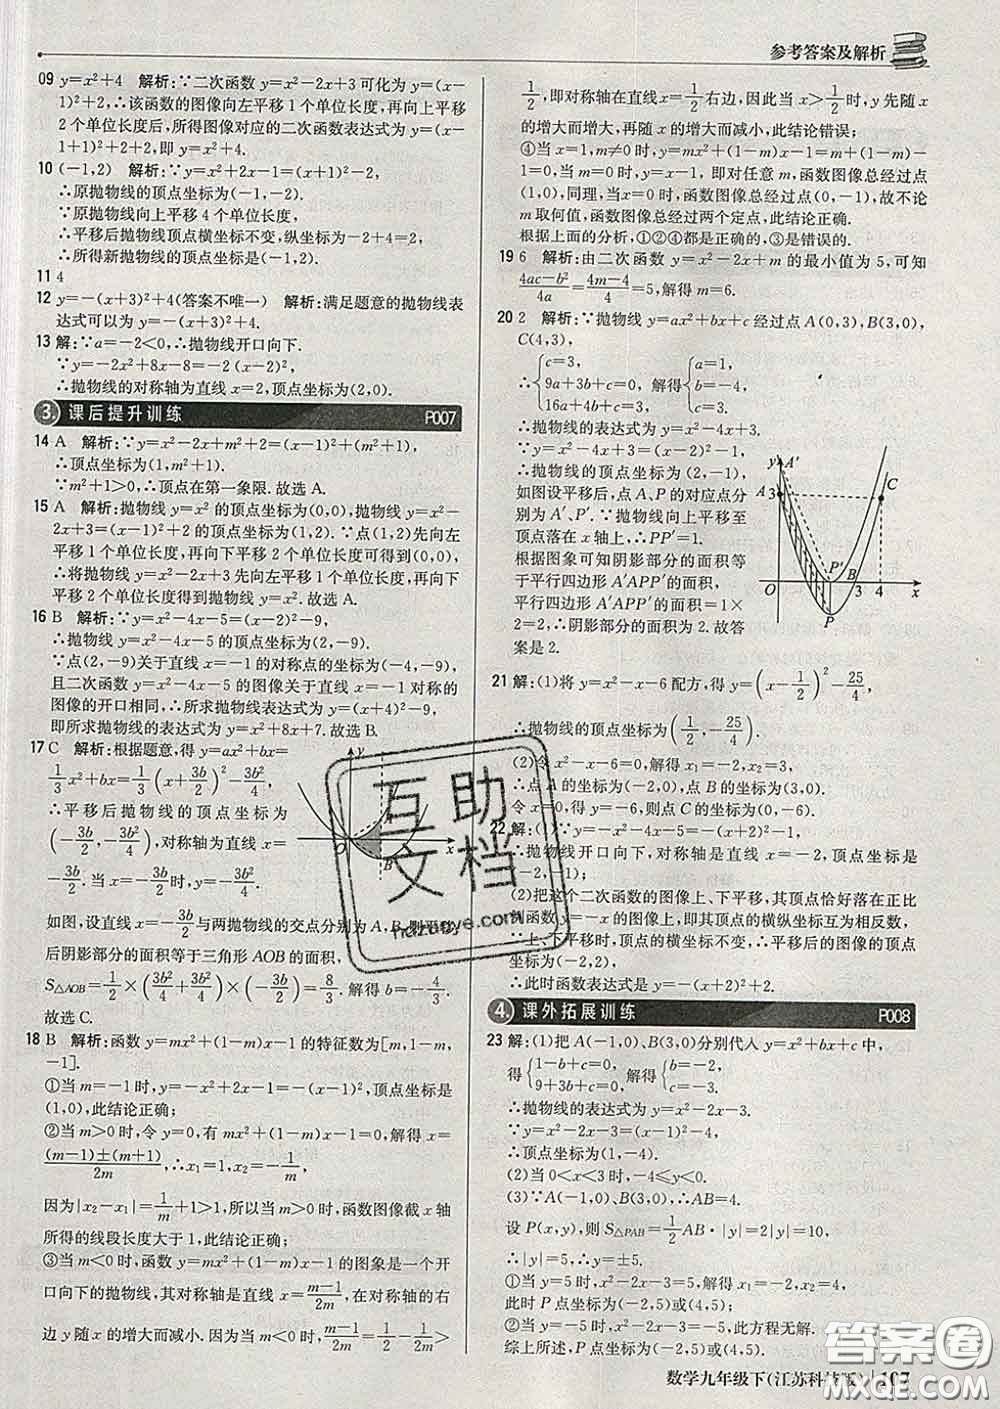 参考答案及解析
09 y=x²+4 解析:∵二次函数y=x²-2x+3可化为y=(x-
1)²+2,∴该函数的图像向左平移1个单位长度,再向上平移
2个单位长度后,所得图像对应的二次函数表达式为y=(x-
1+1)²+2+2,即y=x²+4.
10 (-1,2) 解析:∵y=x²+2x-1=(x+1)²-2,
∴原抛物线的顶点坐标为(-1,-2).
∵原抛物线向上平移4个单位长度,
∴平移后抛物线顶点横坐标不变,纵坐标为-2+4=2,
∴所得新抛物线的顶点坐标是(-1,2).
11 4
12 y=-(x+3)²+4(答案不唯一) 解析:满足题意的抛物线表
达式可以为y=-(x+3)²+4.
13 解:∵a=-2<0,∴抛物线开口向下.
∵y=-2x²+8x-8=-2(x-2)²,
∴抛物线的对称轴为直线x=2,顶点坐标为(2,0).
3. 课后提升训练 P007
14 A 解析:∵y=x²-2x+m²+2=(x-1)²+(m²+1),
∴顶点坐标为(1,m²+1).
∵m²+1>0,∴顶点在第一象限.故选A.
15 A 解析:抛物线y=x²的顶点坐标为(0,0),抛物线y=x²-
2x+3=(x-1)²+2的顶点坐标为(1,2).∵点(1,2)先向左
平移1个单位长度,再向下平移2个单位长度可得到(0,0),
∴将抛物线y=x²-2x+3先向左平移1个单位长度,再向下
平移2个单位长度得到抛物线y=x².故选A.
16 B 解析:∵y=x²-4x-5=(x-2)²-9,
∴抛物线y=x²-4x-5的顶点坐标为(2,-9).
∵点(2,-9)关于直线x=-1的对称点的坐标为(-4,-9),
且二次函数y=x²-4x-5的图像关于直线x=-1对称的
图像的开口相同,∴所求抛物线的表达式为y=(x+4)²-9,
即所求抛物线的表达式为y=x²+8x+7.故选B.
17 C 解析:根据题意,得y=ax²+bx=
1/3x²+bx=1/3(x+3b/2)²-3b²/4,
∴平移后抛物线的顶点坐标为
(-3b/2,-3b²/4),对称轴为直线x=
-3b/2.当x=-3b/2时,y=-3b²/4.
如图,设直线x=-3b/2与两抛物线的交点分别为A,B,则平移
后阴影部分的面积等于三角形AOB的面积,
S△AOB=1/2×(3b²/4+3b²/4)×(-3b/2)=8/3.解得b=-4/3.
故选C.
y
O
B
x
18 B 解析:函数y=mx²+(1-m)x-1的特征数为[m,1-m,
-1].
①当m=-1时,y=-x²+2x-1=-(x-1)²,顶点坐标是
(1,0),此结论正确;
②当m>0时,令y=0,有mx²+(1-m)x-1=0,解得x=
(m-1)±(m+1)/2m,∴x₁=1,x₂=-1/m,
因为|x₂-x₁|=1/m+1>1,所以当m>0时,函数图像截x轴
所得的线段长度大于1,此结论正确;
③当m<0时,函数y=mx²+(1-m)x-1的图象是一个开
口向下的抛物线,其对称轴是直线x=m-1/2m,在对称轴的右
边y随x的增大而减小.因为当m<0时,m-1/2m=1/2-1/2m>
1/2,即对称轴在直线x=1/2右边,因此当x>1/2时,y先随x
的增大而增大,再随x的增大而减小,此结论错误;
④当x=1,m≠0时,y=mx²+(1-m)x-1=m+(1-m)-
1=0.当m=0时,y=x-1,即对任意m,函数图像总经过点
(1,0),同理,当x=0时,函数图像总经过点(0,-1),故不论
m取何值,函数图像总经过两个定点,此结论正确.
根据上面的分析,①②④都是正确的,③是错误的.
19 6 解析:由二次函数y=x²-2x+m的最小值为5,可知
4ac-b²/4a=4m-4/4=5,解得m=6.
20 2 解析:∵抛物线y=ax²+bx+c经过点A(0,3),B(3,0),
C(4,3),
∴{c=3, 9a+3b+c=0, 16a+4b+c=3, 解得{a=1, b=-4, c=3.
∴抛物线的表达式为y=x²-4x+3.
∵y=x²-4x+3=(x-2)²-1,
∴抛物线的顶点坐标为(2,-1).
如图设平移后,点A、P的对应点分
别为A′、P′.∵抛物线向上平移至
顶点落在x轴上,∴PP′=1.
根据图象可知阴影部分的面积等
于平行四边形A′APP′的面积,
平行四边形A′APP′的面积=1×
2=2,∴阴影部分的面积为2.故答
案是2.
y
A′
A 3
C
P′
B
O
3
4
x
P
21 解:(1)将y=x²-x-6配方,得y=(x-1/2)²-25/4,
∴抛物线的顶点坐标为(1/2,-25/4).
(2)令x²-x-6=0,解得x₁=-2,x₂=3,
∴点A的坐标为(-2,0),点B的坐标为(3,0).
令x=0,得y=-6,则点C的坐标为(0,-6).
22 解:(1)∵y=-x²-4x-5=-(x+2)²-1,
∴抛物线开口向下,对称轴是直线x=-2,顶点坐标是
(-2,-1);
(2)把这个二次函数的图像上、下平移,其顶点恰好落在正比
例函数y=-x的图像上,即其顶点的横纵坐标互为相反数,
∵上、下平移时,顶点横坐标不变,∴平移后的图像的顶点
坐标为(-2,2),
∴此时函数表达式是y=-(x+2)²+2.
4. 课外拓展训练 P008
23 解:(1)把A(-1,0)、B(3,0)分别代入y=x²+bx+c中,
得{1-b+c=0, 9+3b+c=0, 解得{b=-2, c=-3.
∴抛物线的表达式为y=x²-2x-3.
∵y=x²-2x-3=(x-1)²-4,
∴顶点坐标为(1,-4).
(2)当0<x<3时,-4≤y<0.
(3)∵A(-1,0)、B(3,0),∴AB=4.
设P(x,y),则S△PAB=1/2AB·|y|=2|y|=10,
∴|y|=5,∴y=±5.
①当y=5时,x²-2x-3=5,解得x₁=-2,x₂=4,
此时P点坐标为(-2,5)或(4,5);
②当y=-5时,x²-2x-3=-5,此方程无解.
综上所述,P点坐标为(-2,5)或(4,5).
互助
文档
hazuoye.com
答案圈
MXQE.COM
数学九年级下(江苏科技版) 107